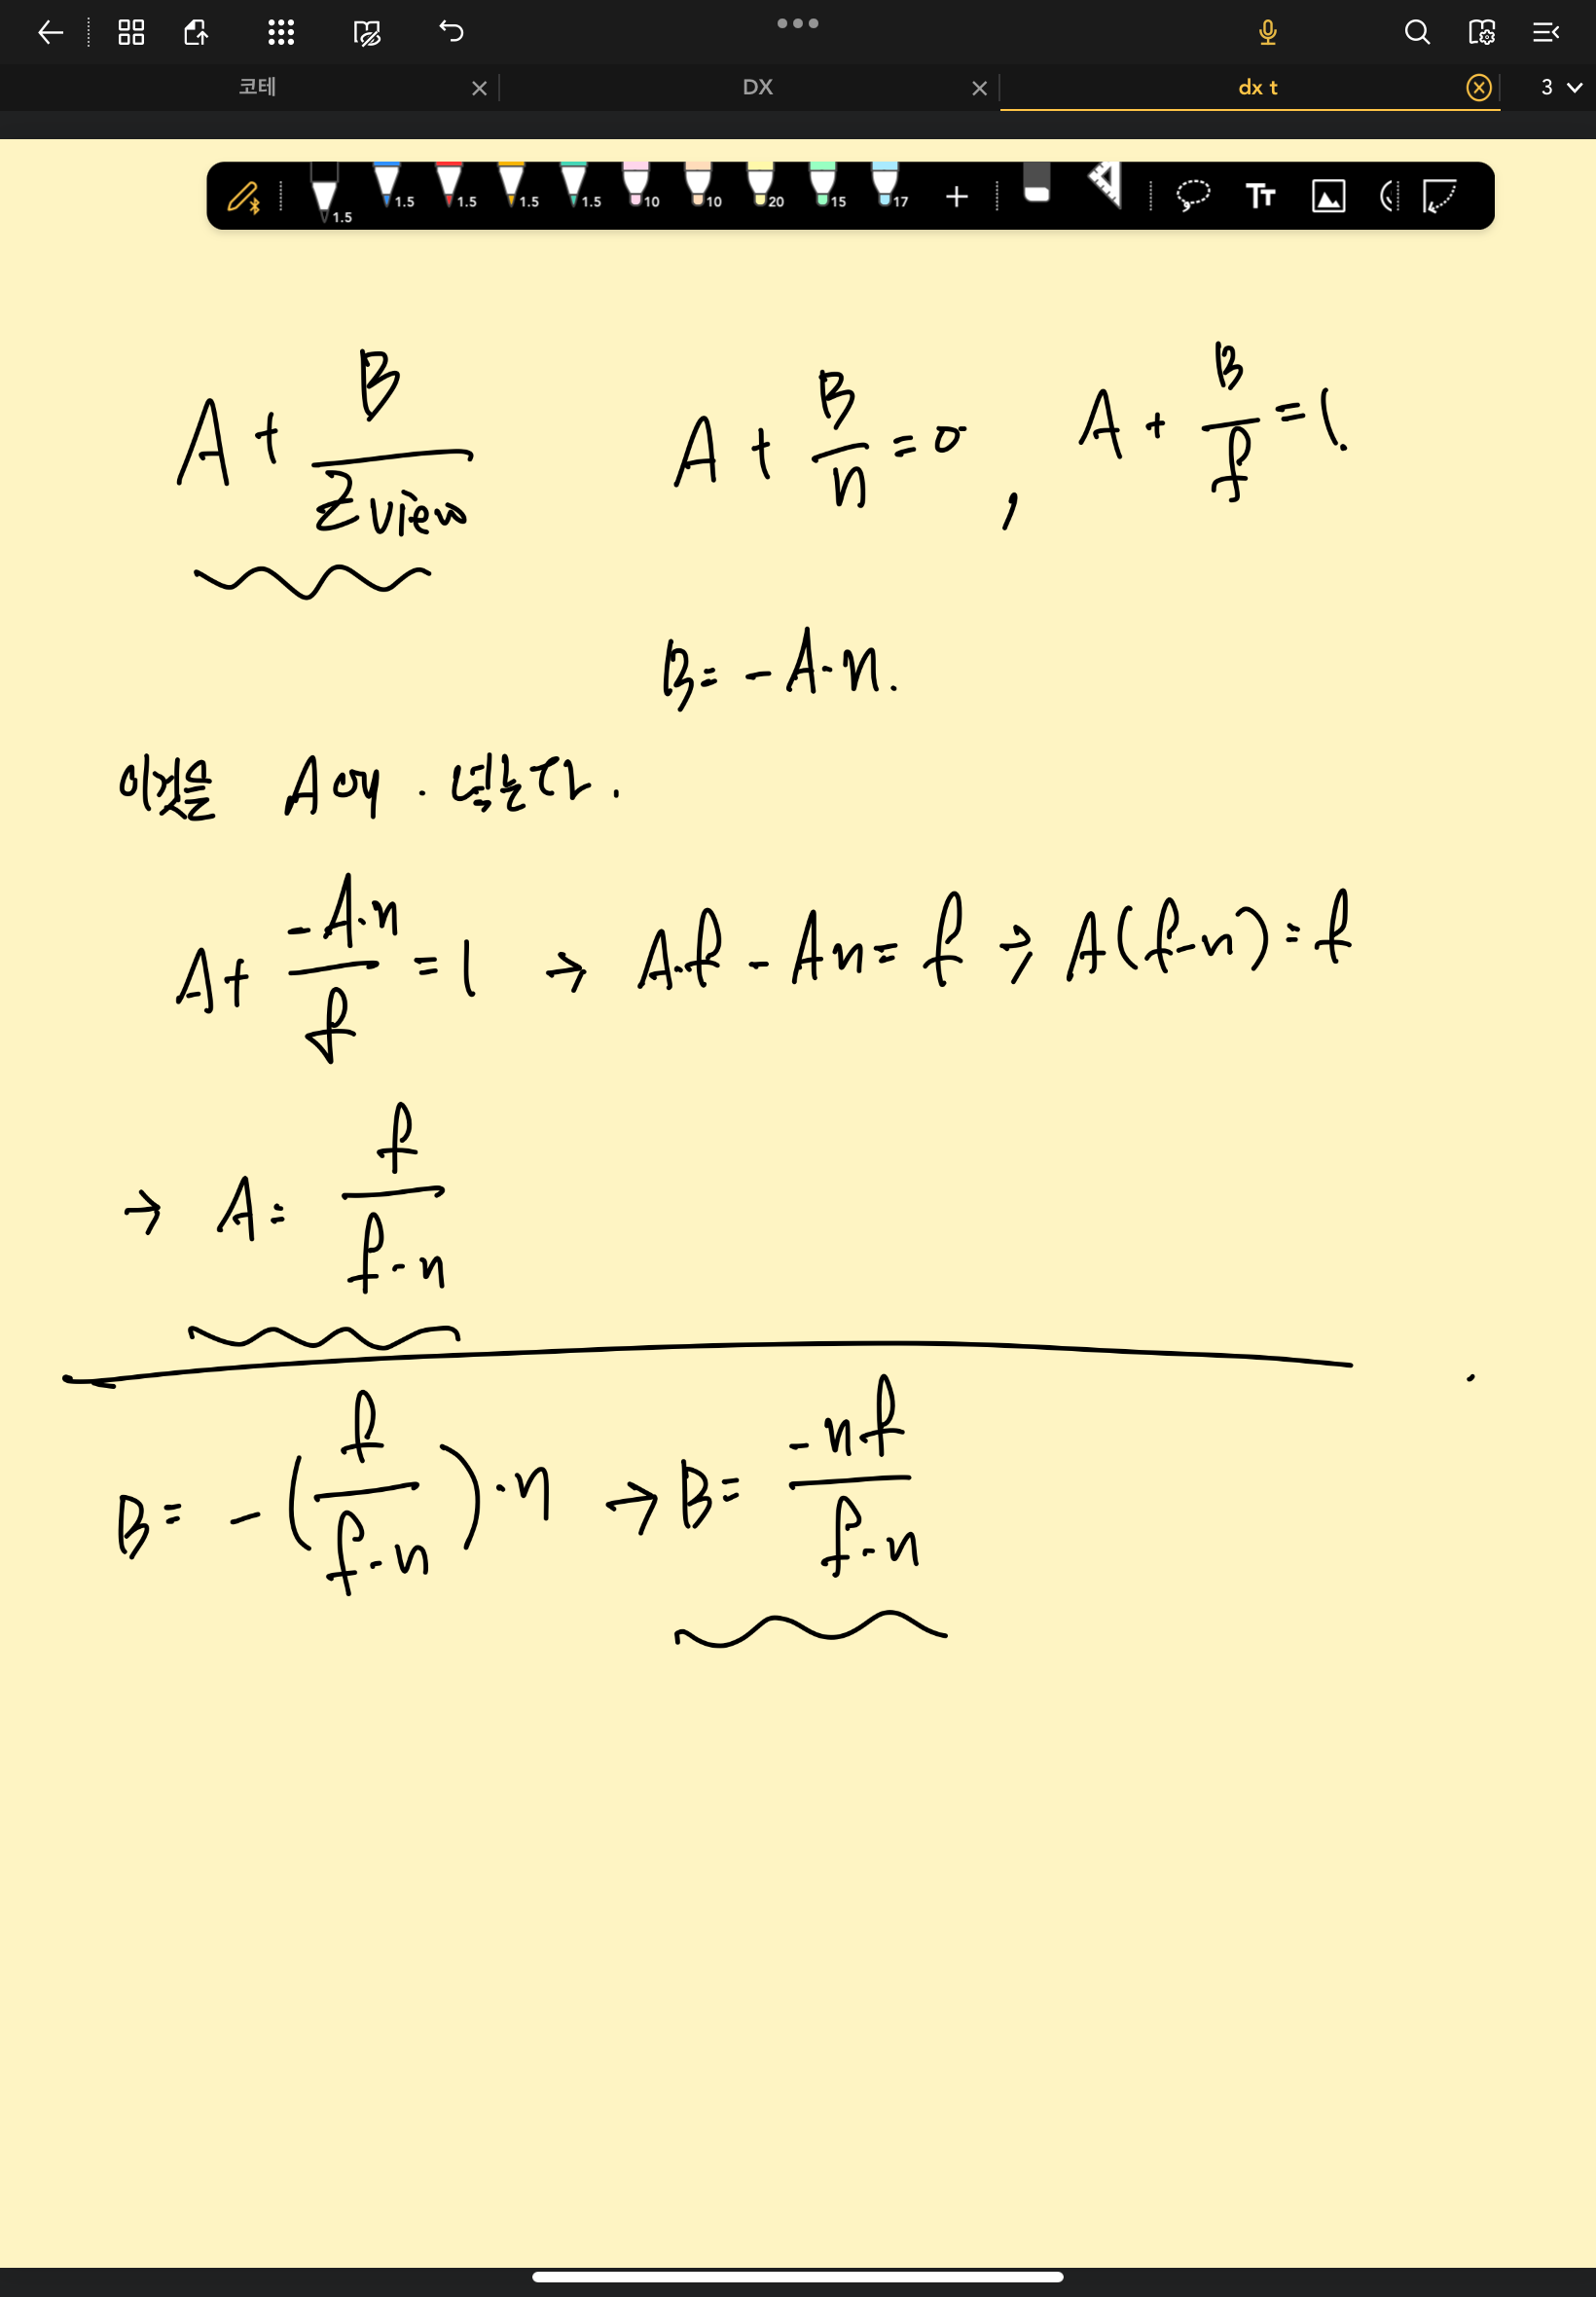 코테 DX dx t 3
1.5 1.5 1.5 1.5 1.5 10 10 20 15 17 Tт
A + B/Zview A + B/n = 0 , A + B/f = 1.
B = -A·n.
이것을 A에 .
A + -A·n/f = 1 → A·f - An = f → A(f-n) = f
→ A = f/f-n
B = -(f/f-n)·n → B = -nf/f-n